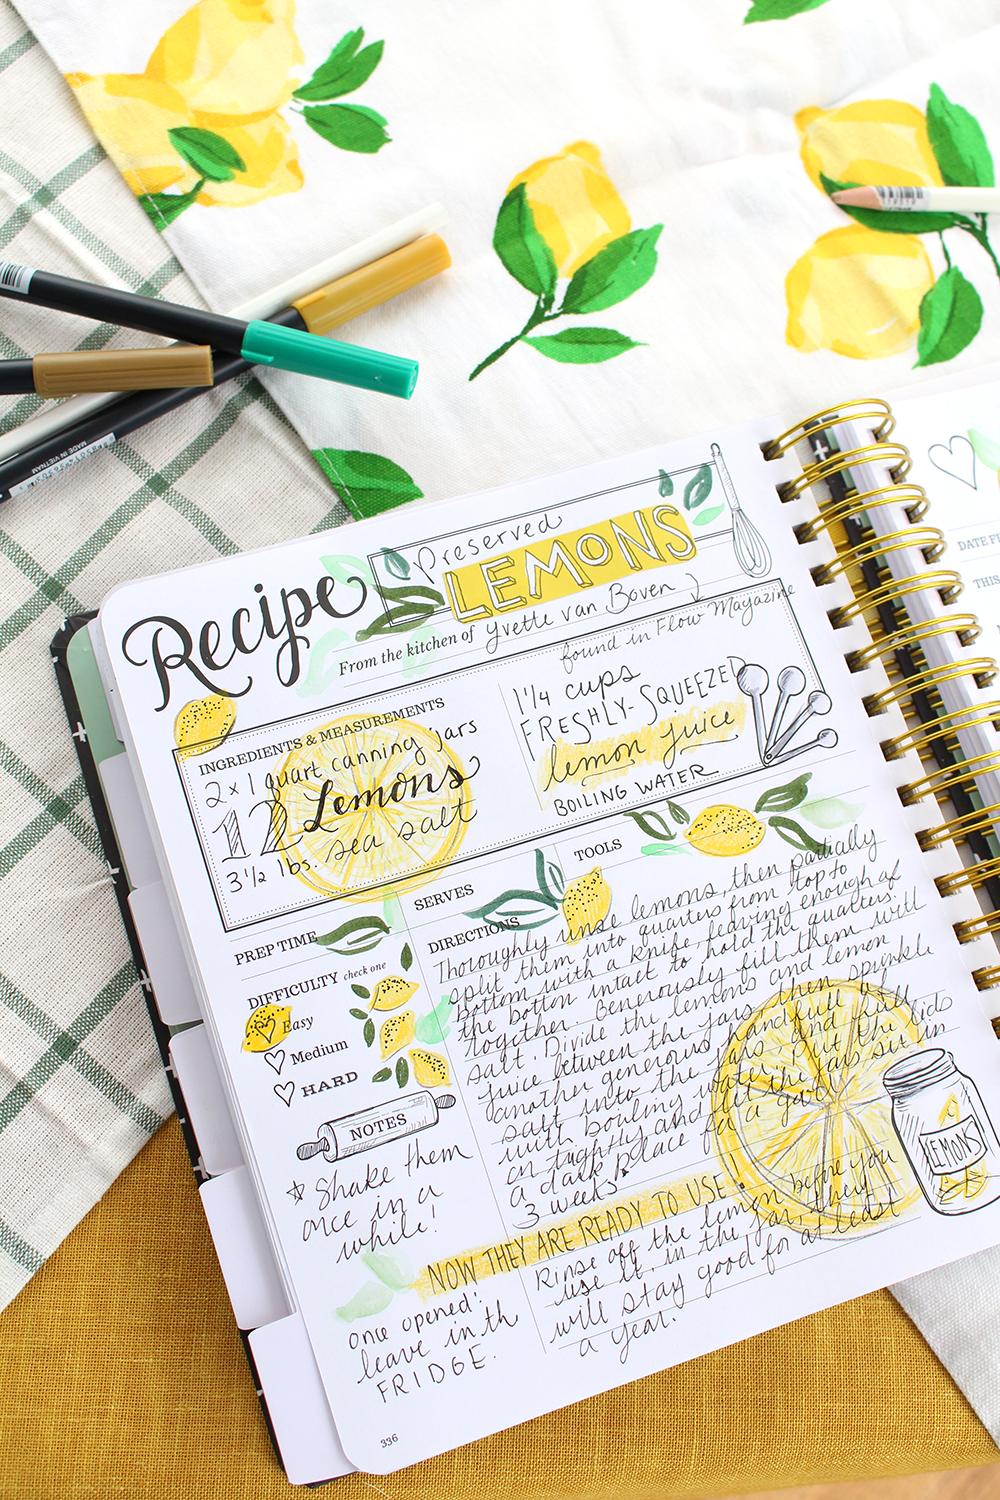 MADE IN VIETNAM
Recipe
Preserved
LEMONS
From the kitchen of Yvette van Boven
found in Flow Magazine
INGREDIENTS & MEASUREMENTS
2 x 1 quart canning jars
12 Lemons
3 1/2 lbs. sea salt
1 1/4 cups
FRESHLY-SQUEEZED
lemon juice
BOILING WATER
PREP TIME
SERVES
TOOLS
DIFFICULTY check one
Easy
Medium
HARD
NOTES
Shake them
once in a
while!
once opened:
leave in th
FRIDGE.
DIRECTIONS
Thoroughly rinse lemons, then partially
split them into quarters from top to
bottom with a knife, leaving enough of
the bottom intact to hold the quarters
together. Generously fill them with
salt. Divide the lemons and lemon
juice between the jars, then sprinkle
another generous handful
salt into the jars and fill
with boiling water. Put the lids
on tightly and let the jars sit in
a dark place for a gar!
3 weeks
NOW THEY ARE READY TO USE!
Rinse off the lemon before you
use it. in the jar, they
will stay good for at least
a year.
LEMONS
336
DATE FI
THIS